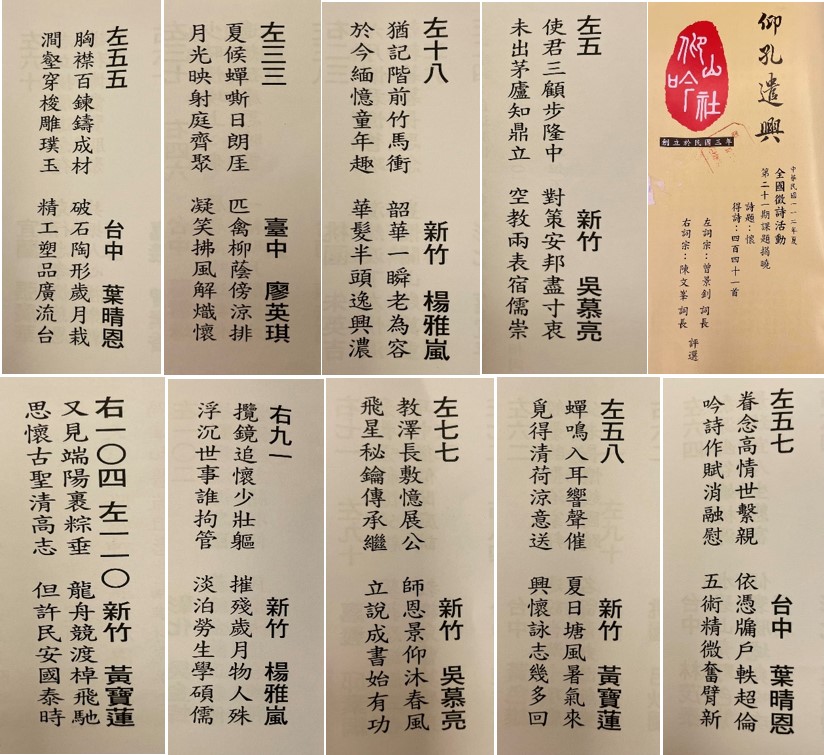 仰孔遣興
仰山吟社
創立於民國三年
中華民國一一二年夏
全國徵詩活動
第二十一期課題揭曉
詩題:懷
得詩:四百四十一首
左詞宗:曾景釗 詞長
右詞宗:陳文峯 詞長
評選
左五 新竹 吳慕亮
使君三顧步隆中 對策安邦盡寸衷
未出茅廬知鼎立 空教兩表宿儒崇
左十八 新竹 楊雅嵐
猶記階前竹馬衝 韶華一瞬老為容
於今緬憶童年趣 華髮半頭逸興濃
左三三 臺中 廖英琪
夏候蟬嘶日朗厓 匹禽柳蔭傍涼排
月光映射庭齊聚 凝笑拂風解熾懷
左五五 台中 葉晴恩
胸襟百鍊鑄成材 破石陶形歲月栽
澗壑穿梭雕璞玉 精工塑品廣流台
左五七 台中 葉晴恩
眷念高情世繫親 依憑牖戶軼超倫
吟詩作賦消融慰 五術精微奮臂新
左五八 新竹 黃寶蓮
蟬鳴入耳響聲催 夏日塘風暑氣來
覓得清荷涼意送 興懷詠志幾多回
左七七 新竹 吳慕亮
教澤長敷憶展公 師恩景仰沐春風
飛星秘鑰傳承繼 立說成書始有功
右九一 新竹 楊雅嵐
攬鏡追懷少壯軀 摧殘歲月物人殊
浮沉世事誰拘管 淡泊勞生學碩儒
右一〇四 左一一〇 新竹 黃寶蓮
又見端陽裹粽垂 龍舟競渡棹飛馳
思懷古聖清高志 但許民安國泰時